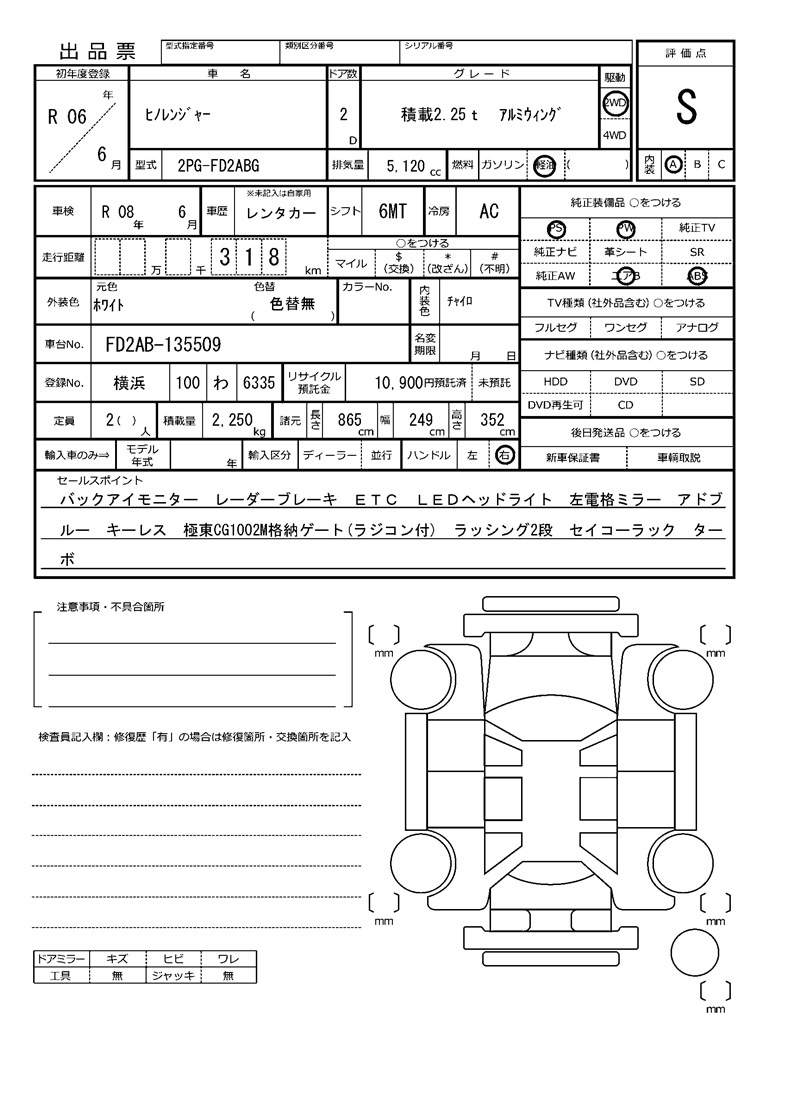 出品票 型式指定番号 類別区分番号 シリアル番号 評価点
初年度登録 車名 ドア数 グレード 駆動
R 06 年 6 月 ﾋﾉﾚﾝｼﾞｬｰ 2 D 積載2.25ｔ ｱﾙﾐｳｨﾝｸﾞ 2WD 4WD S
型式 2PG-FD2ABG 排気量 5,120 cc 燃料 ガソリン 軽油 ( ) 内装 A B C
車検 R 08 年 6 月 車歴 ※未記入は自家用 レンタカー シフト 6MT 冷房 AC 純正装備品 ○をつける
PS PW 純正TV
走行距離 万 千 3 1 8 km ○をつける
マイル $ (交換) * (改ざん) # (不明)
純正ナビ 革シート SR
純正AW エアB ABS
外装色 元色 ﾎﾜｲﾄ 色替 ( 色替無 ) カラーNo. 内装色 ﾁｬｲﾛ
TV種類 (社外品含む) ○をつける
フルセグ ワンセグ アナログ
車台No. FD2AB-135509 名変期限 月 日
ナビ種類 (社外品含む) ○をつける
登録No. 横浜 100 わ 6335 リサイクル預託金 10,900円預託済 未預託
HDD DVD SD
DVD再生可 CD
定員 2 ( ) 人 積載量 2,250 kg 諸元 長さ 865 cm 幅 249 cm 高さ 352 cm
後日発送品 ○をつける
輸入車のみ⇒ モデル年式 年 輸入区分 ディーラー 並行 ハンドル 左 右
新車保証書 車輌取説
セールスポイント
バックアイモニター レーダーブレーキ ＥＴＣ ＬＥＤヘッドライト 左電格ミラー アドブ
ルー キーレス 極東CG1002M格納ゲート(ラジコン付) ラッシング2段 セイコーラック ター
ボ
注意事項・不具合箇所
mm mm
検査員記入欄：修復歴「有」の場合は修復箇所・交換箇所を記入
mm mm
ドアミラー キズ ヒビ ワレ
工具 無 ジャッキ 無
mm